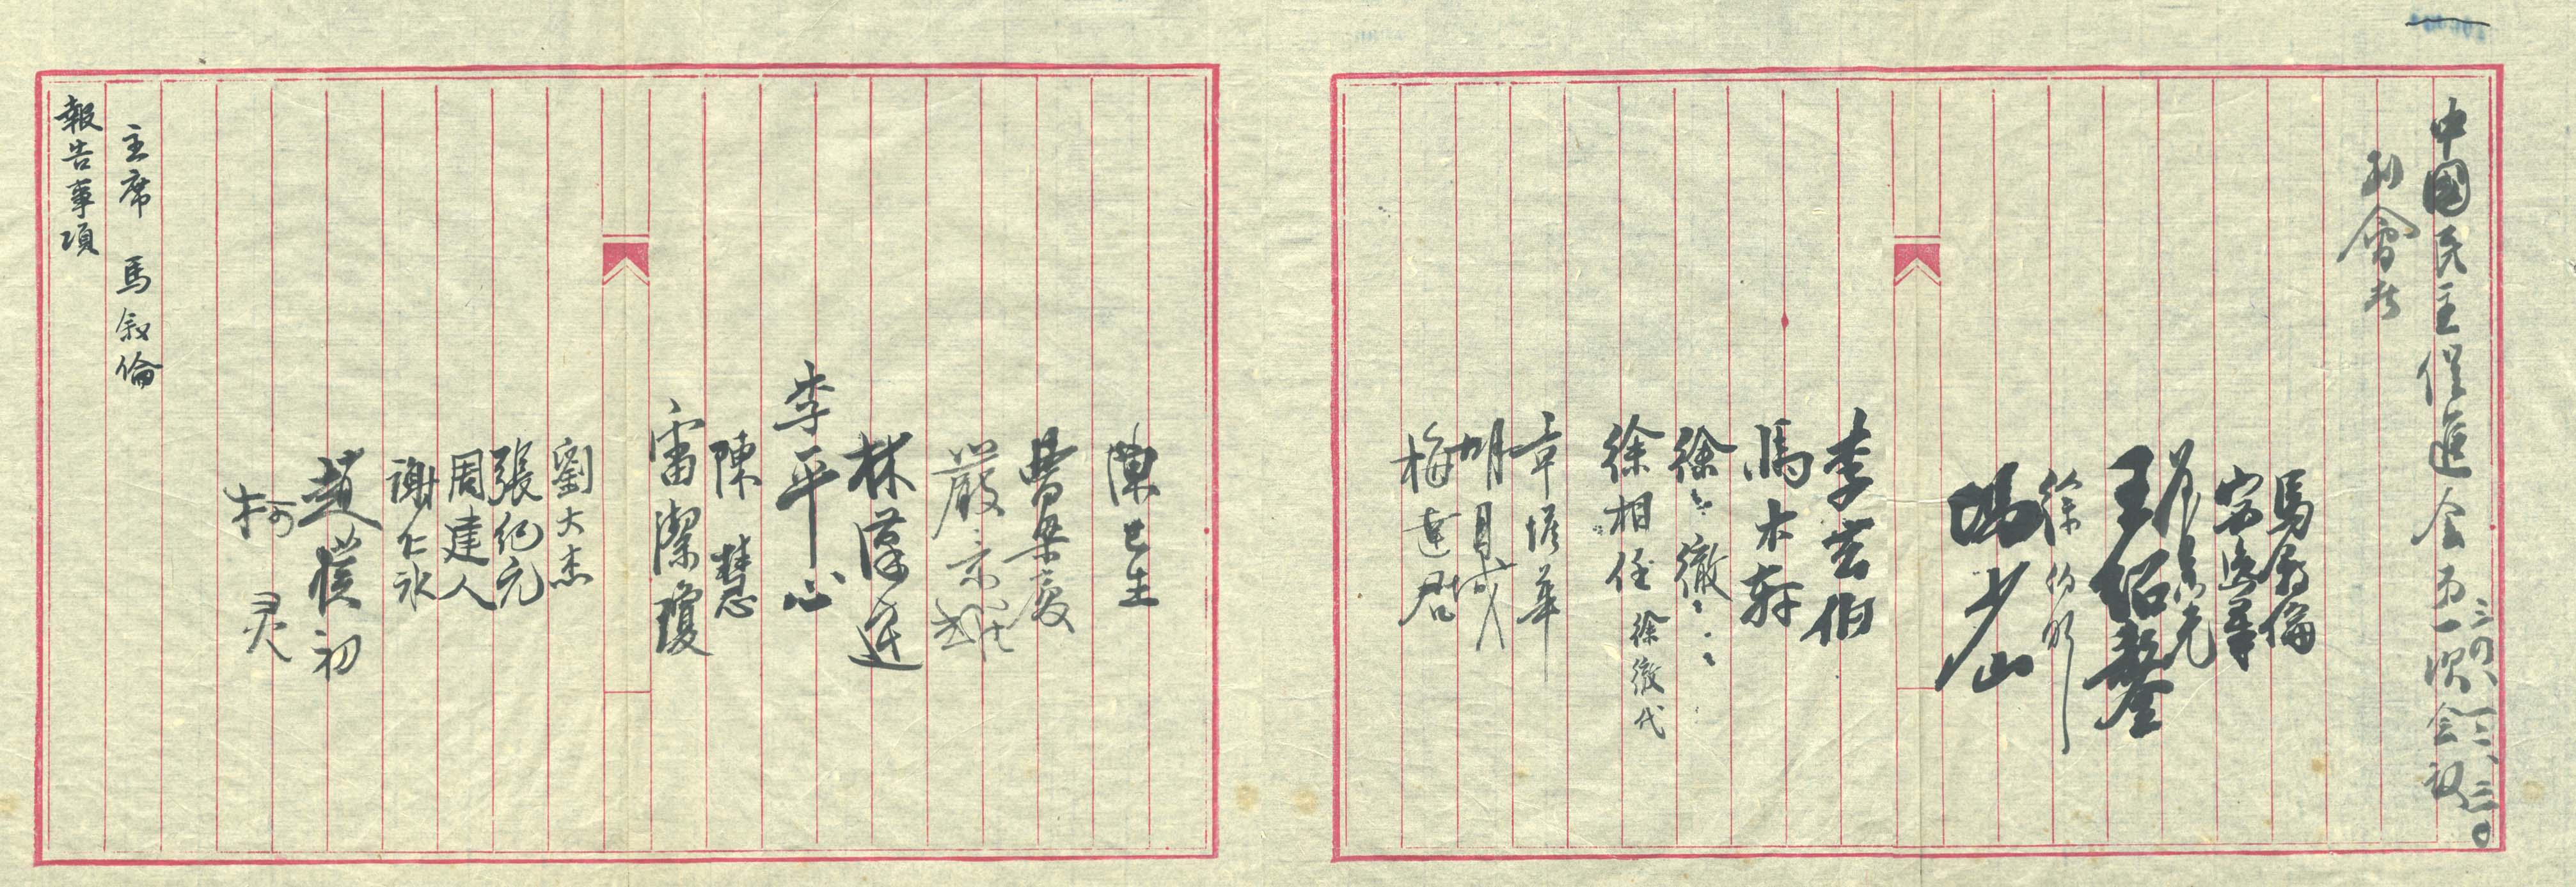 中國民主促進会第一次会議
三四、一二、三〇
到會者
馬叙倫
宓逸羣
嚴景光
王紹鏊
徐伯昕
馮少山
李玄伯
馬木軒
徐徹
徐相任 徐徹代
章蟾華
胡國城
梅達君
陳巳生
曹梁廈
嚴景耀
林漢達
李平心
陳慧
雷潔瓊
劉大杰
張紀元
周建人
謝仁冰
趙樸初
柯灵
主席 馬叙倫
報告事項